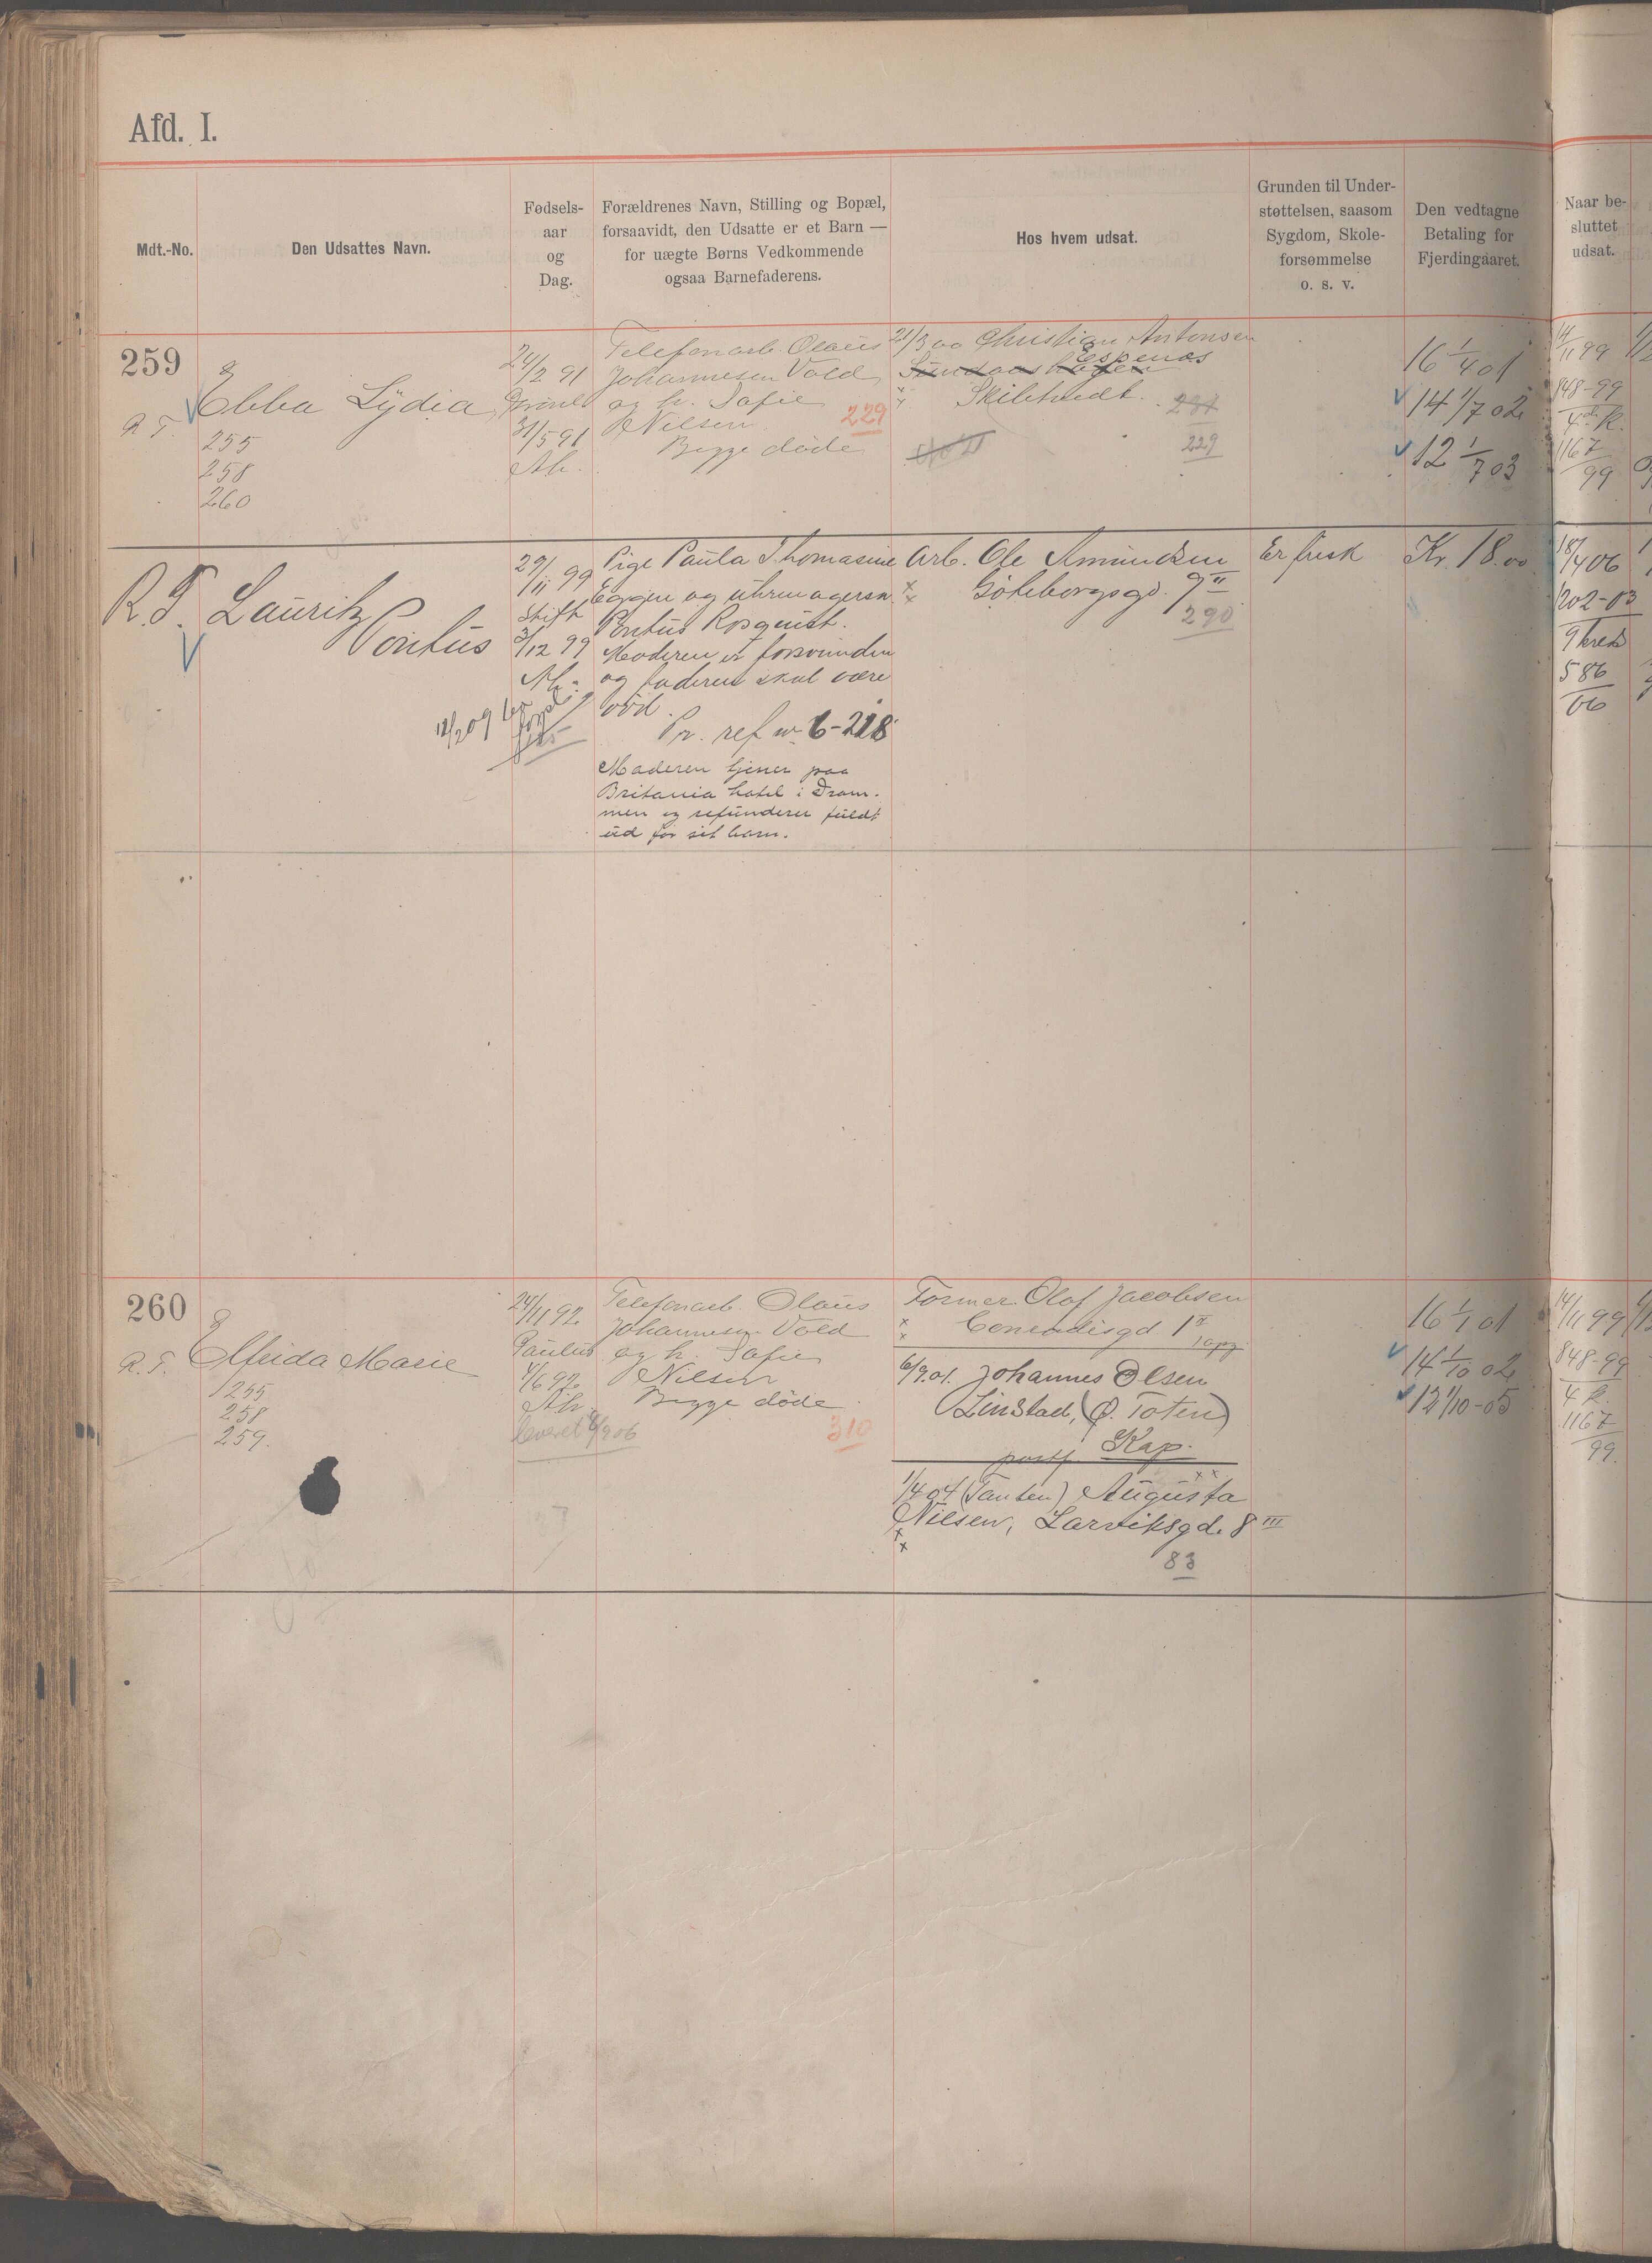 Afd. I.
Mdt.-No.
Den Udsattes Navn.
Fødsels-
aar
og
Dag.
Forældrenes Navn, Stilling og Bopæl,
forsaavidt, den Udsatte er et Barn —
for uægte Børns Vedkommende
ogsaa Barnefaderens.
Hos hvem udsat.
Grunden til Under-
støttelsen, saasom
Sygdom, Skole-
forsømmelse
o. s. v.
Den vedtagne
Betaling for
Fjerdingaaret.
Naar be-
sluttet
udsat.
259
R. T.
Ebba Lydia
255
258
260
24/2 91
31/5 91
Ak.
Telefonarb. Olaus
Johannesen Vold
og h. Sofie
Nilsen
Begge døde
229
21/3 00 Christian Antonsen
Espenæs
Skibtvedt.
229
16 1/4 01
14 1/7 02
12 1/7 03
14/11 99
848-99
4de k.
1167
99
R. T. Lauritz
Pontus
29/11 99
Stift
3/12 99
Ak.
Pige Paula Thomasine
Eggen og uhrmagersv.
Pontus Rosquist.
Moderen er forsvunden
og faderen skal være
död.
Pr. ref. 6-218
Moderen tjener paa
Britania hotel i Dram-
men og refunderer fuldt
ud for sit barn.
Arb. Ole Amundsen
Göteborgsgd. 9 II
290
Er frisk
Kr. 18.00
18/4 06
202-03
9 kreds
586
06
260
R. T.
Elfrida Marie
255
258
259.
24/11 92
Paulus
4/6 92
Ak.
Telefonarb. Olaus
Johannesen Vold
og h. Sofie
Nilsen
Begge døde
310
Former Olaf Jacobsen
1 I opg.
6/9.01. Johannes Olsen
Linstad, (Ø. Toten)
postf Kap.
1/4 04 (Tanten) Augusta
Nilsen, Larviksgd. 8 III
83
16 1/1 01
14 1/10 02
12 1/10-05
14/11 99
848-99
4 k.
1167
99.